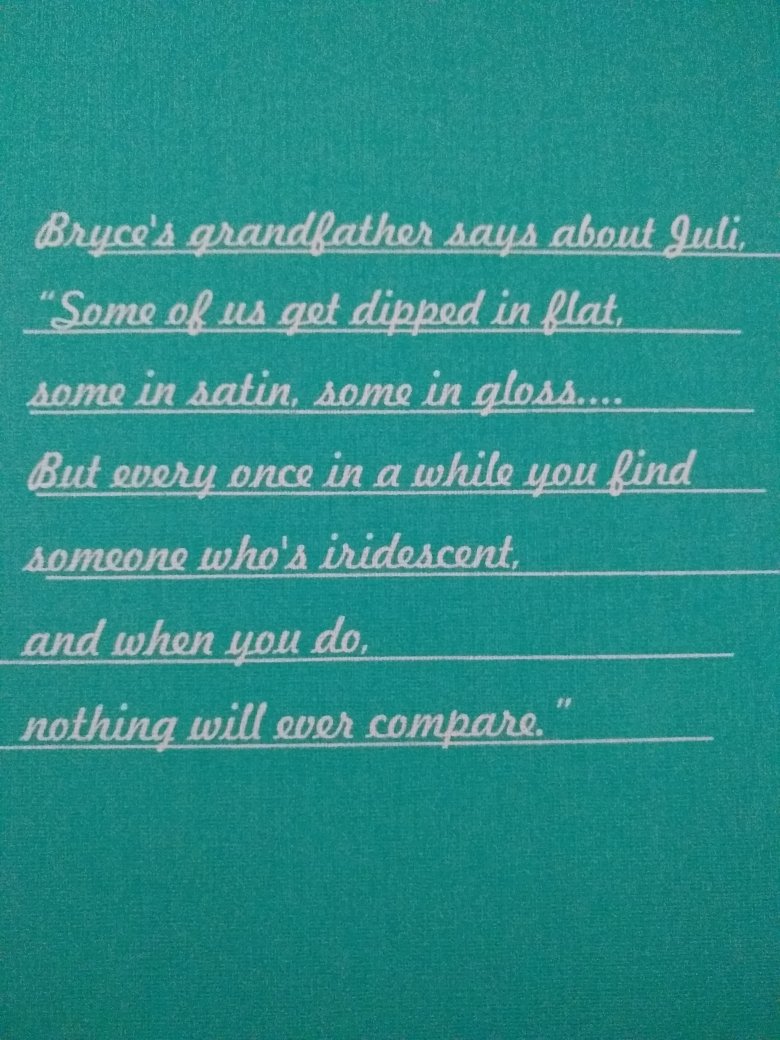 Bryce's grandfather says about Juli,
"Some of us get dipped in flat,
some in satin, some in gloss....
But every once in a while you find
someone who's iridescent,
and when you do,
nothing will ever compare."